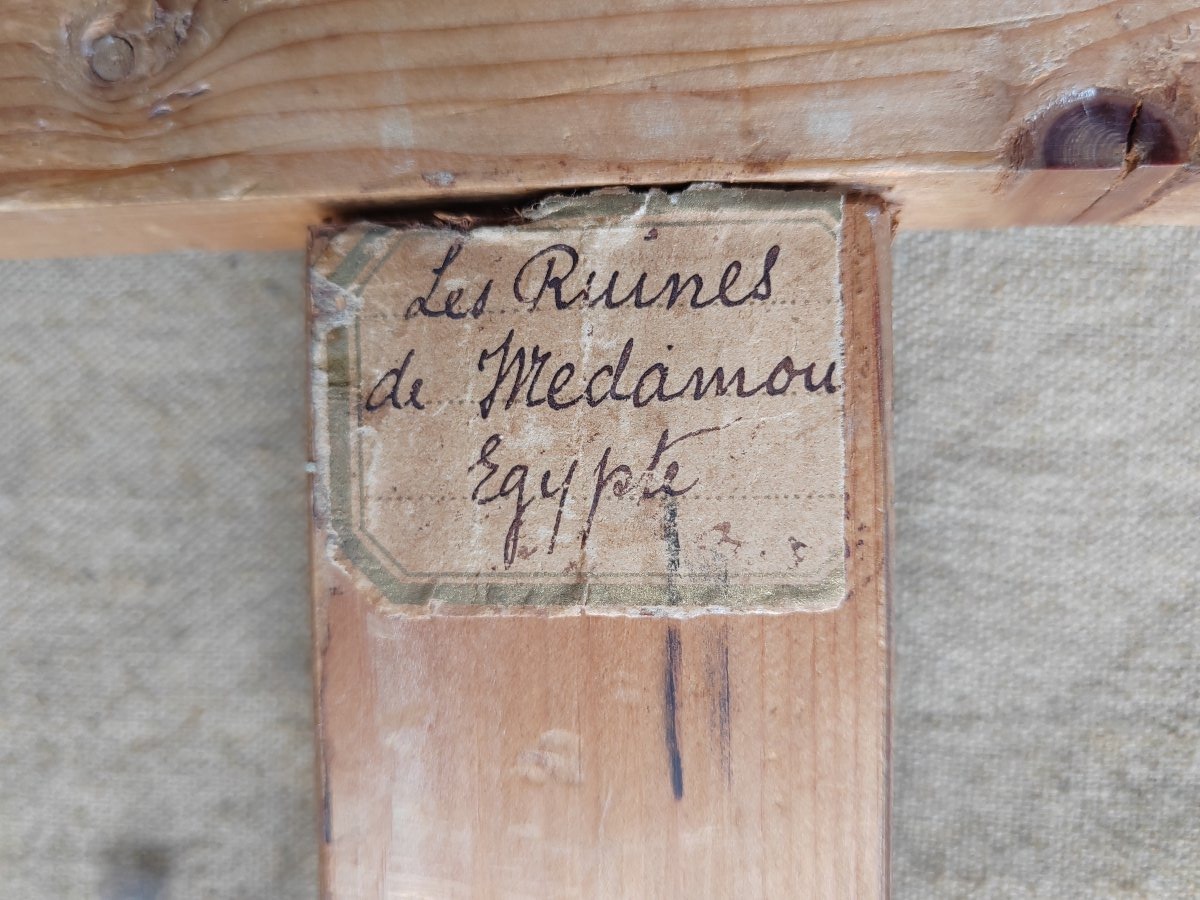 Les Ruines
de Medamou
Egypte